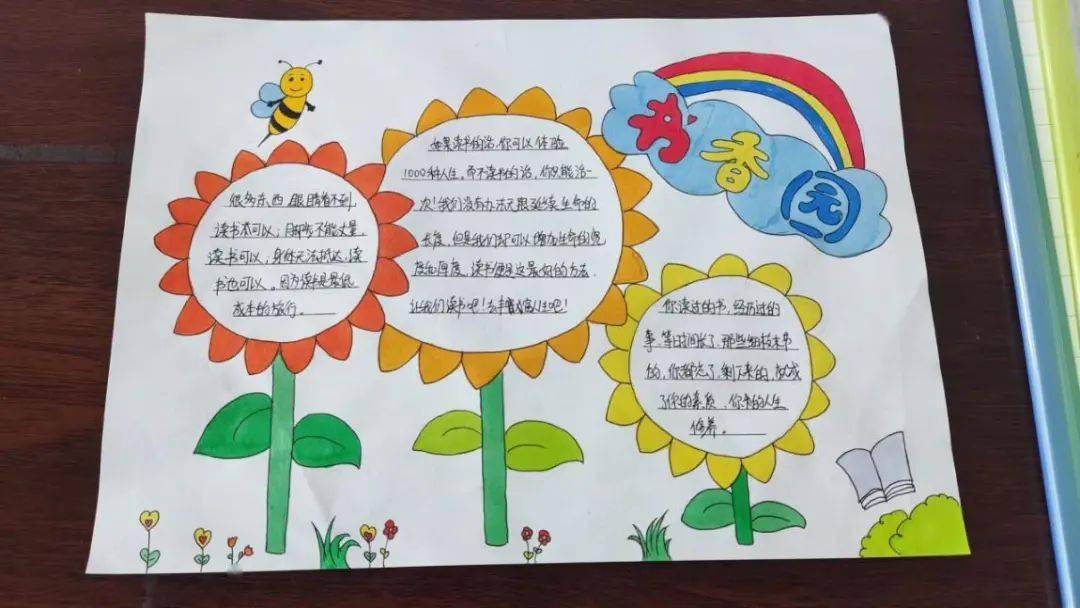 书香园
很多东西,眼睛看不到,
读书都可以;脚步不能丈量,
读书可以;身体无法抵达,读
书也可以。因为读书是最低
成本的旅行。
如果读书的话,你可以体验
1000种人生,而不读书的话,你只能活一
次!我们没有办法无限延续生命的
长度,但是我们却可以增加生命的宽
度和厚度,读书便是这最好的方法,
让我们读书吧!去丰富人生吧!
你读过的书,经历过的
事,等时间长了,那些细枝末节
的,你都忘了,剩下来的,就成
了你的素质,你的人生
修养。